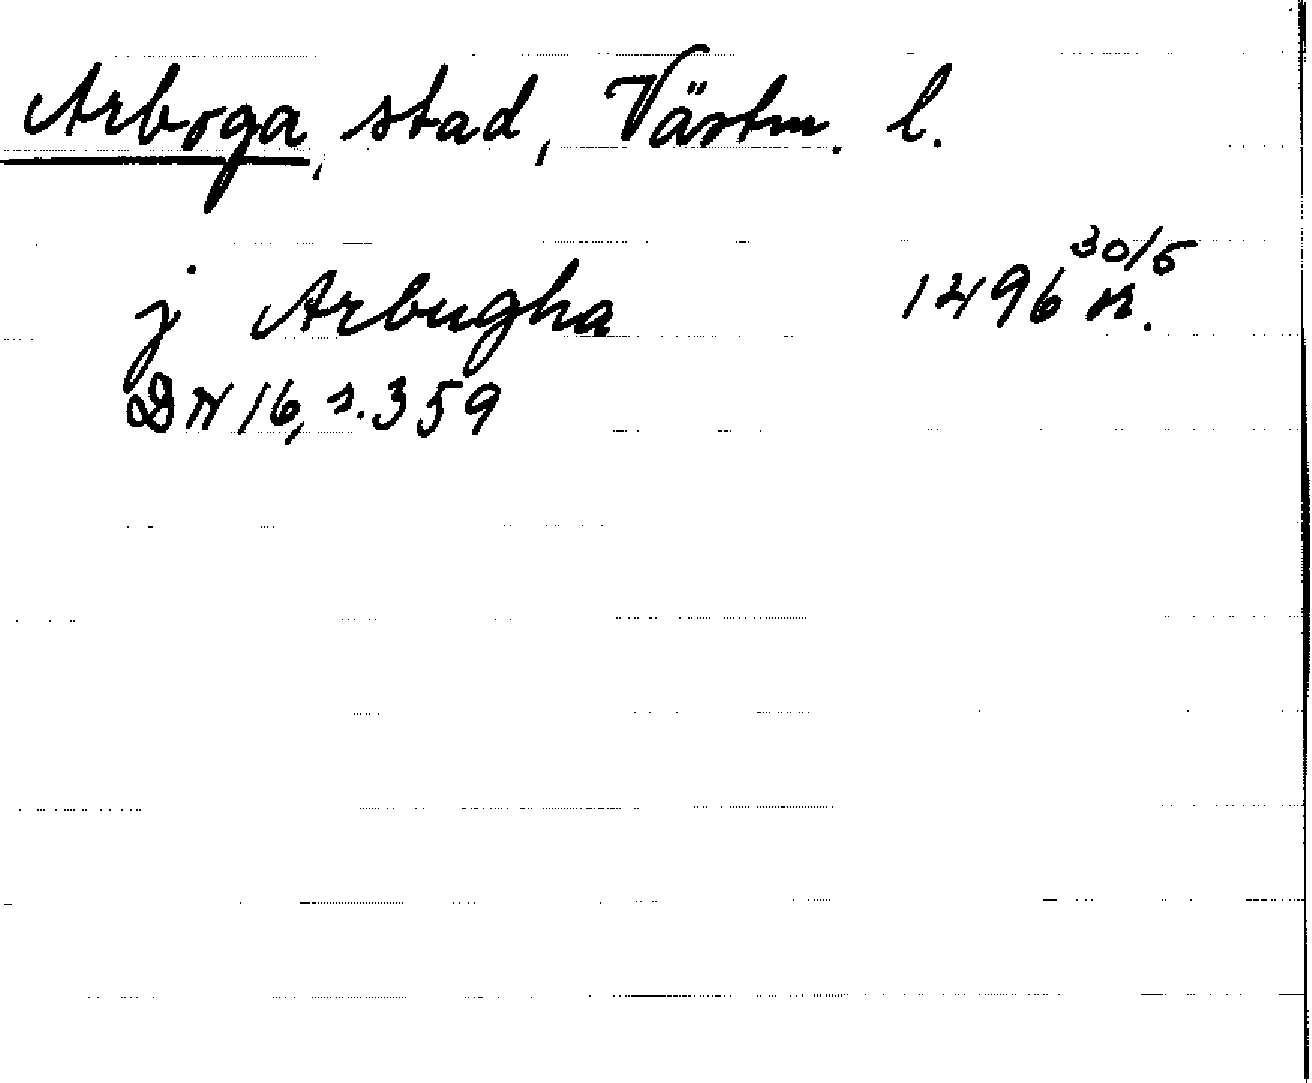 Arboga, stad, Västm. l.
j Arbugha 1496 30/5 or.
DN 16, s. 359